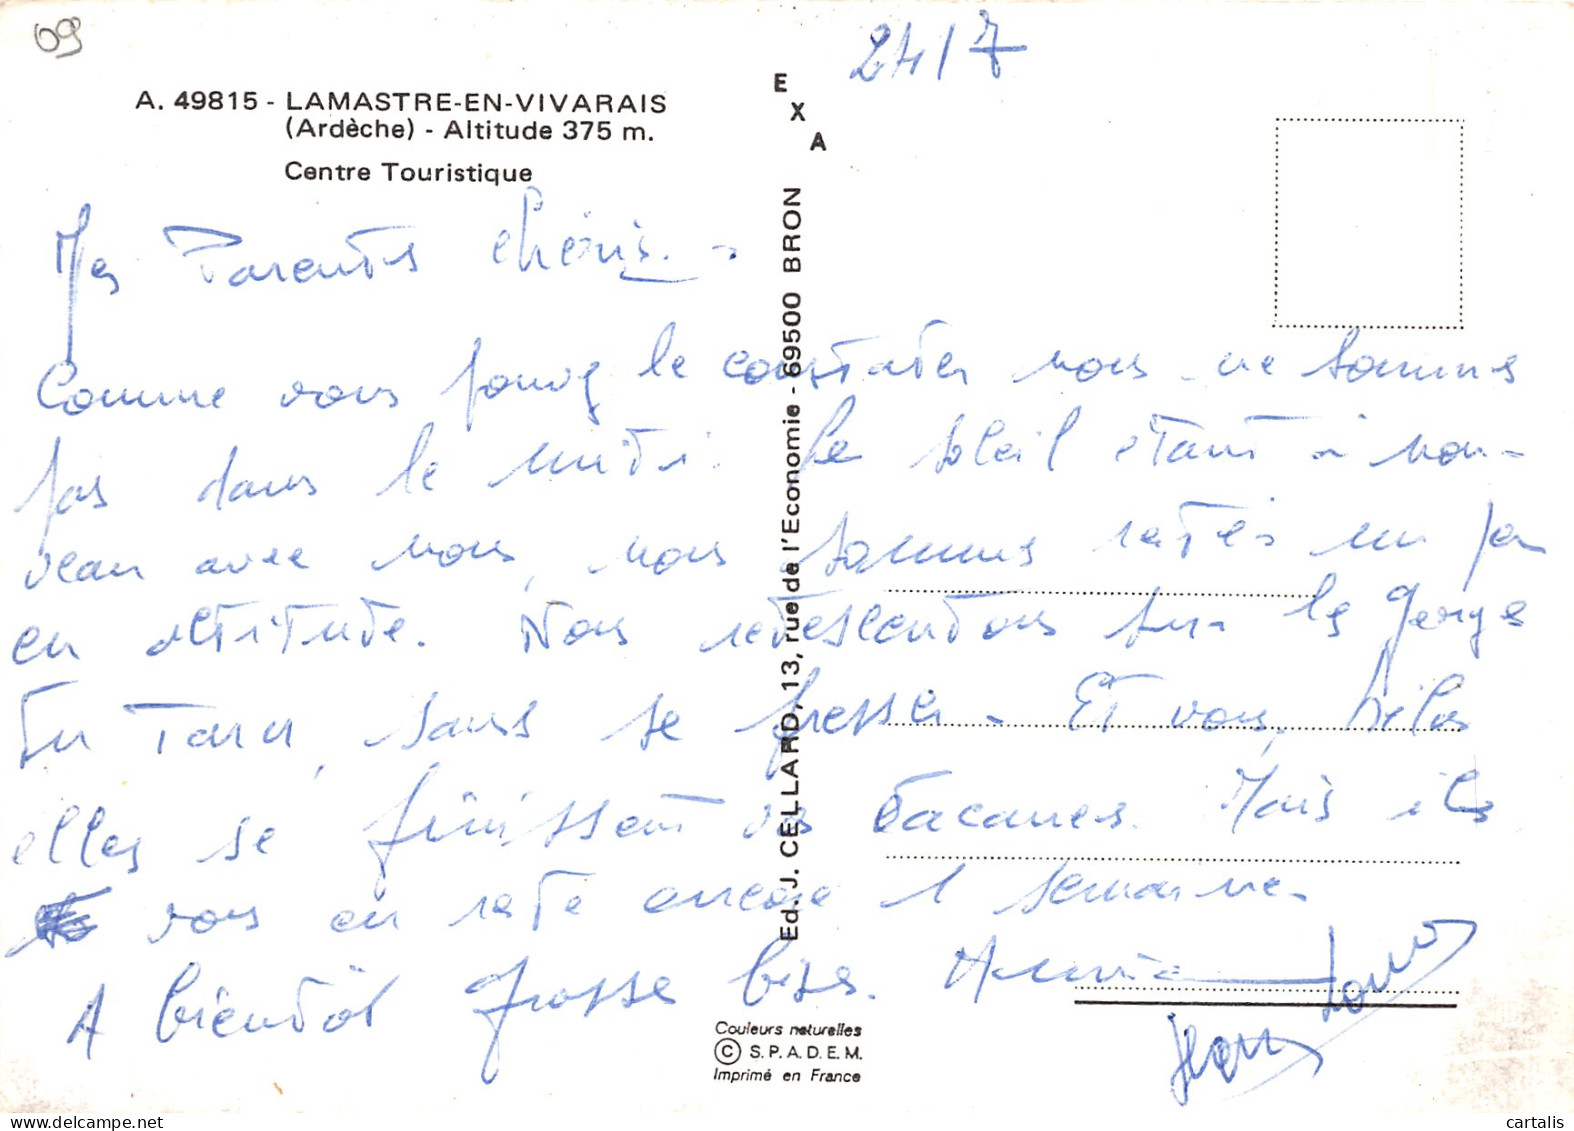 09
24/7
A. 49815 - LAMASTRE-EN-VIVARAIS
(Ardèche) - Altitude 375 m.
Centre Touristique
E
X
A
Mes Parents chéris. -
Comme vous pouvez le constater nous ne sommes
pas dans le midi. Le soleil étant à nou-
veau avec nous, nous sommes restés un peu
en altitude. Nous redescendons sur les Gorges
du Tarn, sans se presser. Et vous, hélas
elles se finissent vos vacances. Mais il
vous en reste encore 1 semaine.
A bientôt grosse bises. Annie
Jean Louis
Ed. J. CELLARD, 13, rue de l'Economie - 69500 BRON
Couleurs naturelles
© S.P.A.D.E.M.
Imprimé en France
cartalis